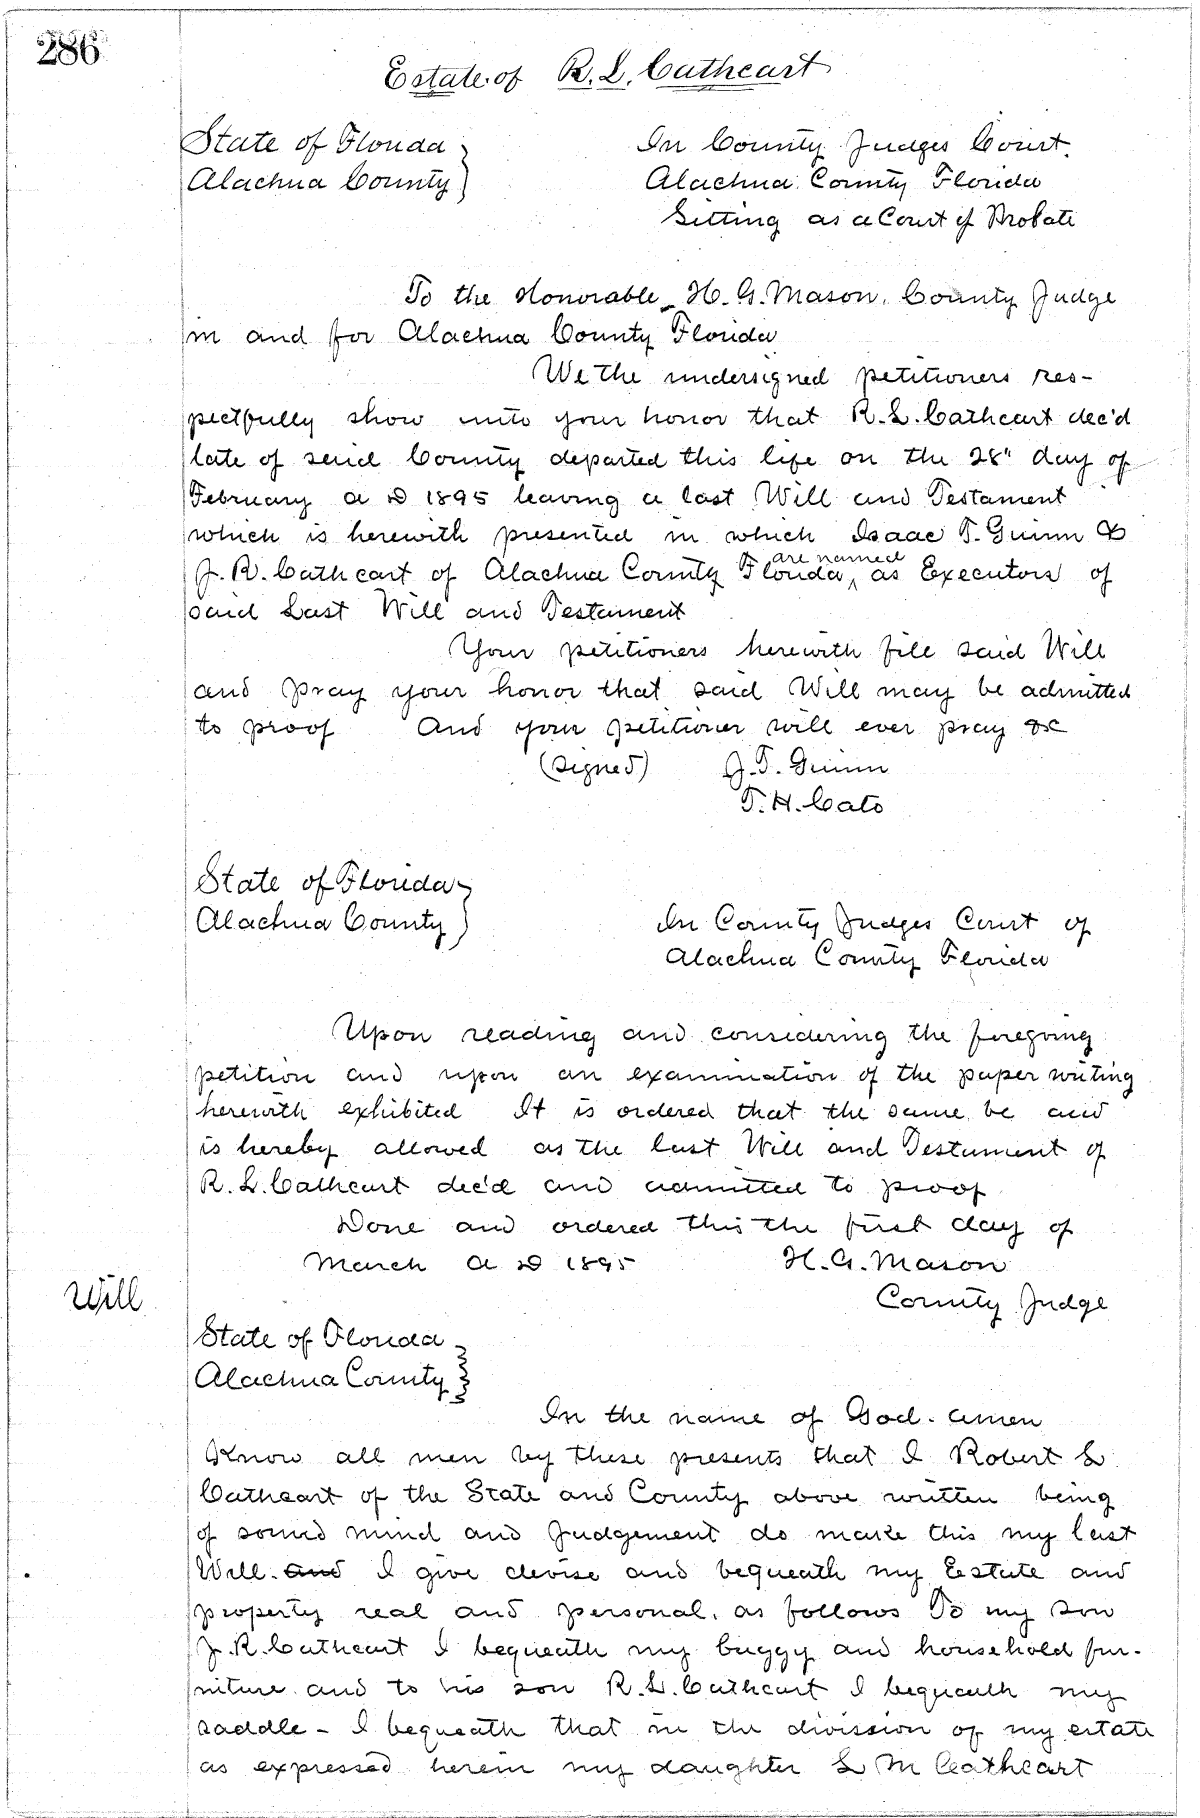 286
Estate of R. L. Cathcart
State of Florida
Alachua County
In County Judges Court.
Alachua County Florida
Sitting as a Court of Probate
To the Honorable H. G. Mason, County Judge
in and for Alachua County Florida
We the undersigned petitioners res-
pectfully show unto your honor that R. L. Cathcart dec'd
late of said County departed this life on the 28" day of
February A D 1895 leaving a last Will and Testament
which is herewith presented in which Isaac T. Guinn &
J. R. Cathcart of Alachua County Florida, ^are named as Executors of
said Last Will and Testament
Your petitioners herewith file said Will
and pray your honor that said Will may be admitted
to proof And your petitioner will ever pray &c
(signed) J. T. Guinn
T. H. Cato
State of Florida
Alachua County
In County Judges Court of
Alachua County Florida
Upon reading and considering the foregoing
petition and upon an examination of the paper writing
herewith exhibited It is ordered that the same be and
is hereby allowed as the last Will and Testament of
R. L. Cathcart dec'd and admitted to proof
Done and ordered this the first day of
March A D 1895 H. G. Mason
County Judge
Will
State of Florida
Alachua County
In the name of God. Amen
Know all men by these presents that I Robert L
Cathcart of the State and County above written being
of sound mind and Judgement do make this my last
Will. and I give devise and bequeath my Estate and
property real and personal, as follows To my son
J. R. Cathcart I bequeath my buggy and household fur-
niture and to his son R. L. Cathcart I bequeath my
saddle - I bequeath that in the division of my estate
as expressed herein my daughter L M Cathcart